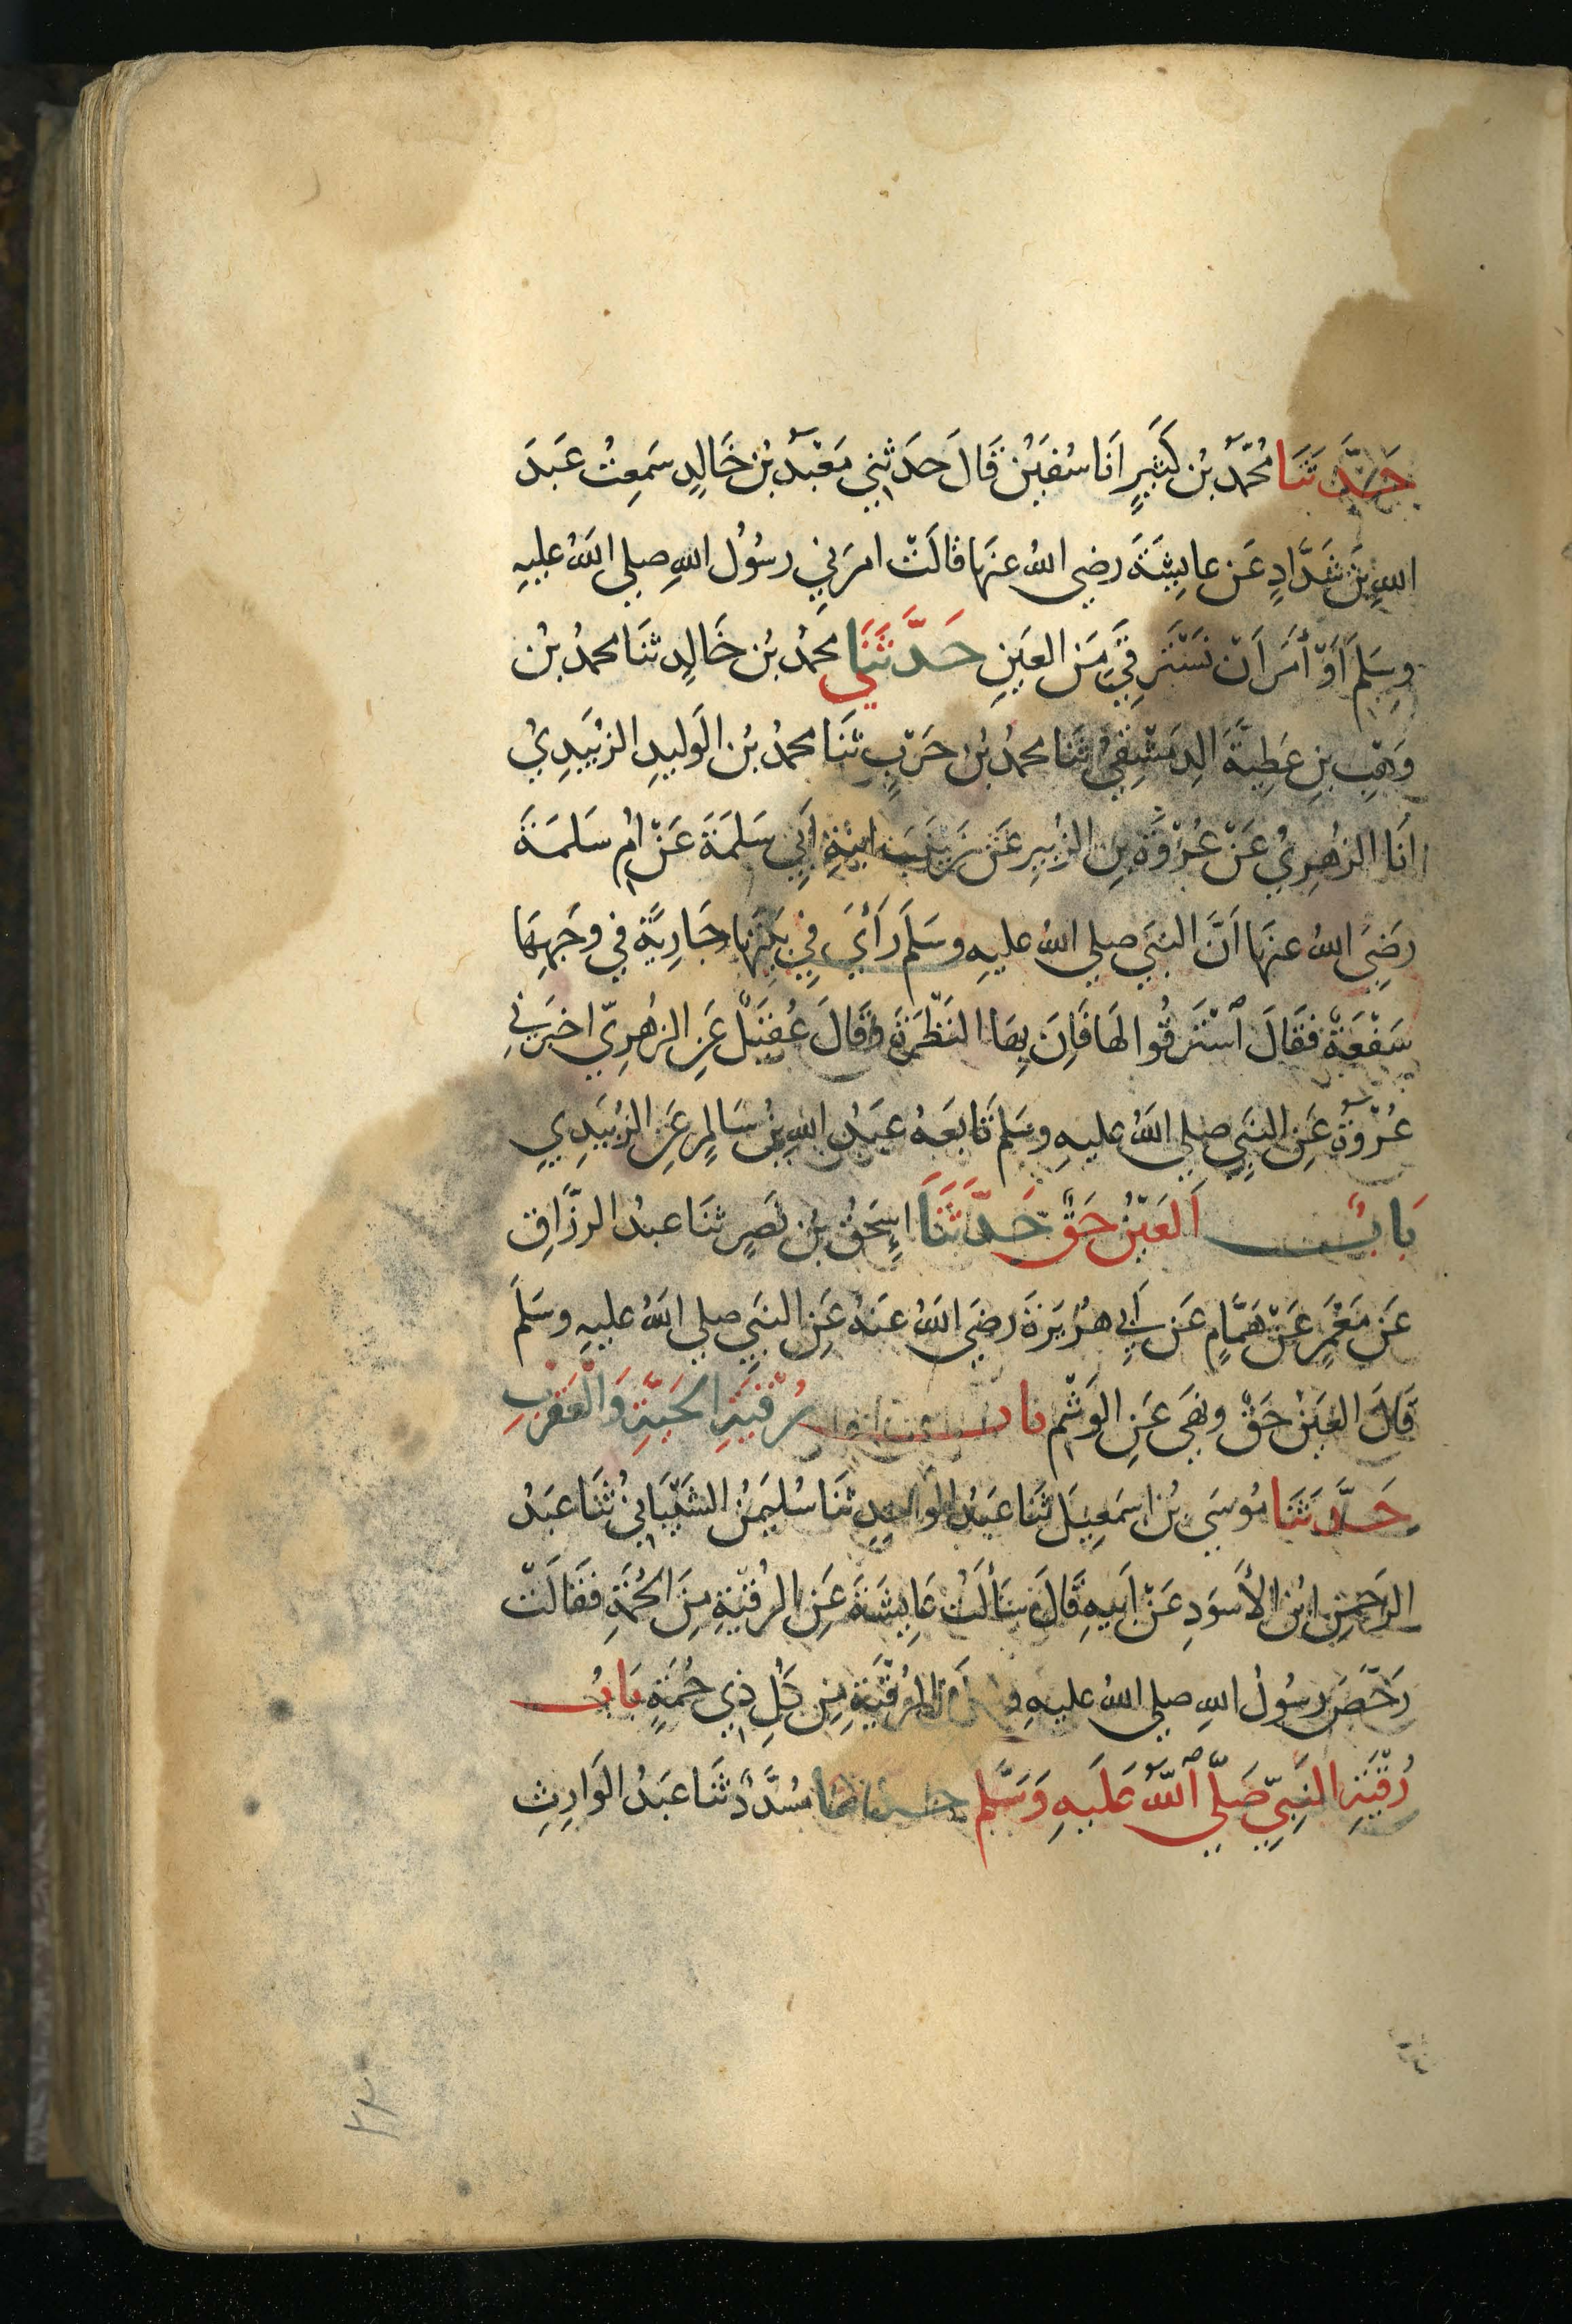 حَدَّثَنَا مُحَمَّدُ بْنُ كَثِيرٍ اَنَا سُفْيَنُ قَالَ حَدَثَنِي مَعْبَدُ بْنُ خَالِدٍ سَمِعْتُ عَبدَ
اللهِ بْنَ شَدَّادٍ عَنْ عايِشَةَ رضي اللهُ عنهَا قالَتْ امرَنِي رسُوُل اللهِ صلي اللهُ عليهِ
وسَلم اَوْ أمَرَ اَنْ نَسْتَرقِيَ مِنَ العَينِ حَدَّثَنَي محمدُ بْن خَالِدٍ ثنَا محمدُ بْن
وَهْبِ بنِ عَطِيةَ الدِمَشْقِيُ ثنَا محمدُ بْن حَرْبٍ ثنَا محمدُ بْن الوَليدِ الزبَيدِيُ
اَنَا الزهرِيُ عَنْ عُرْوَةَ بنِ الزُبيرِ عَنْ زَينَبَ ابنَةِ اَبِي سَلمَةَ عَنْ امِ سَلمَةَ
رَضِيَ اللهُ عنهَا اَنَّ النبَي صلي اللهُ عليهِ وسَلمَ رَاَيَ فِي بَيْتِهَا جَارِيَةً في وَجهِهَا
سَفْعَةٌ فَقَالَ اسْتَرقُوا لهَا فَاِنَ بِهَا النَظْرَةَ وَقَالَ عُقَيْلٌ عَنِ الزهرِيّ اخبَرَنِي
عُرْوَةُ عَنِ النبَي صلي اللهُ عليهِ وسَلم تَابَعَهُ عَبدُ اللهِ بْنُ سَالِمٍ عَنِ الزُبَيدِيِ
بَابٌ العَيْنُ حَقٌّ حَدَّثَنَا اِسحَقُ بْن نَصرٍ ثنَا عبدُ الرزَّاقِ
عَنْ مَعْمَرٍ عَنْ هَمَّامٍ عَن اَبِي هُرَيرَةَ رضَي اللهُ عنهُ عَنِ النبَي صلي اللهُ عليهِ وسَلَّمَ
قَالَ العَينُ حَقٌ ونهَي عَنِ الوَشْمِ باب رُقْيَةِ الحَيَّةِ وَالْعَقْرَبِ
حَدَّثَنَا مُوسَي بْن اسمَعِيلَ ثَنَا عَبدُ الوَاحِدِ ثنَا سُليمَنُ الشَيْبَانِيُ ثَنَا عبدُ
الرَحمنِ ابْن الأسوَدِ عَنْ اَبيهِ قَالَ سَأَلتُ عَايِشَةَ عَنِ الرُقْيَةِ مِنَ الحُمَةِ فَقَالَتْ
رَخَّصَ رسُولُ اللهِ صلي اللهُ عليهِ الرُقْيَةِ مِن كلِ ذِي حُمَةٍ بَابُ
رُقْيَةِ النَبِيِّ صَلَّي ٱللّٰهُ عَلَيهِ وَسَلَّم حدثنا مسُدَّدٌ ثَنَا عبدُ الوَارِثِ